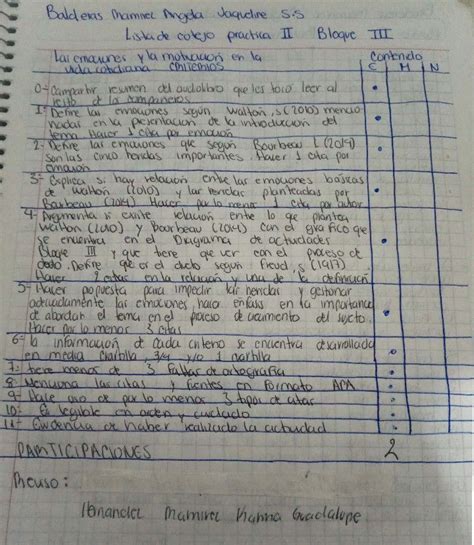 Balderas Ramirez Angela Jaqueline S.S
Lista de cotejo practica II Bloque III
Las emociones y la motivacion en la
vida cotidiana CRITERIOS
Contenido
C M N
0- Compartir resumen del audiolibro que les toco leer al
resto de los compañeros
1- Define las emociones según Walton, S (2010) mencio
nadas en la presentacion de la introduccion del
tema. Hacer 1 cita por emoción
2- Define las emociones que según Bourbeau L (2014)
son las cinco heridas importantes. Hacer 1 cita por
emoción
3- Explica si hay relación entre las emociones basicas
de Walton (2010) y las heridas planteadas por
Bourbeau (2014) Hacer por lo menos 1 cita por autor
4- Argumenta si existe relación entre lo que plantea
Walton (2010) y Bourbeau (2014) con el grafico que
se encuentra en el Diagrama de actividades
bloque III y que tiene que ver con el proceso de
duelo. Define que es el duelo según Freud, S (1917)
Hacer 2 citas en la relación y una de la definición
5- Hacer propuesta para impedir las heridas y gestionar
adecuadamente las emociones, haca enfasis en la importancia
de abordar el tema en el proceso de del sujeto.
Hacer por lo menos 3 citas
6- la información de cada criterio se encuentra desarrollada
en media cuartilla, 3/4 y/o 1 cuartilla
7- tiene menos de 3 faltas de ortografia
8- Menciona las citas y fuentes en formato APA
9- Hace uso de por lo menos 3 tipos de citas
10- Es legible con orden y cuidado
11- Evidencia de haber realizado la actividad
PARTICIPACIONES 2
Reviso:
Hernandez Ramirez Vianna Guadalupe